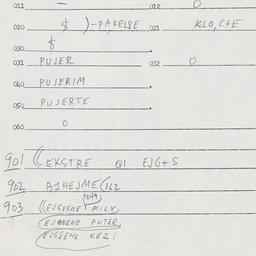 011 — 012 0
020 $ )-PAKELSE 021 KLO,C+E
030 $
031 PUJER 032 0
040 PUJERIM
050 PUJERTE
060 0
901 (EKSTRE 01 EJG+S
902 B1HEJME(162
903 ((EJGUENE MILX,
(EJGUENE PUTER,
(EJGUENE KEZ(